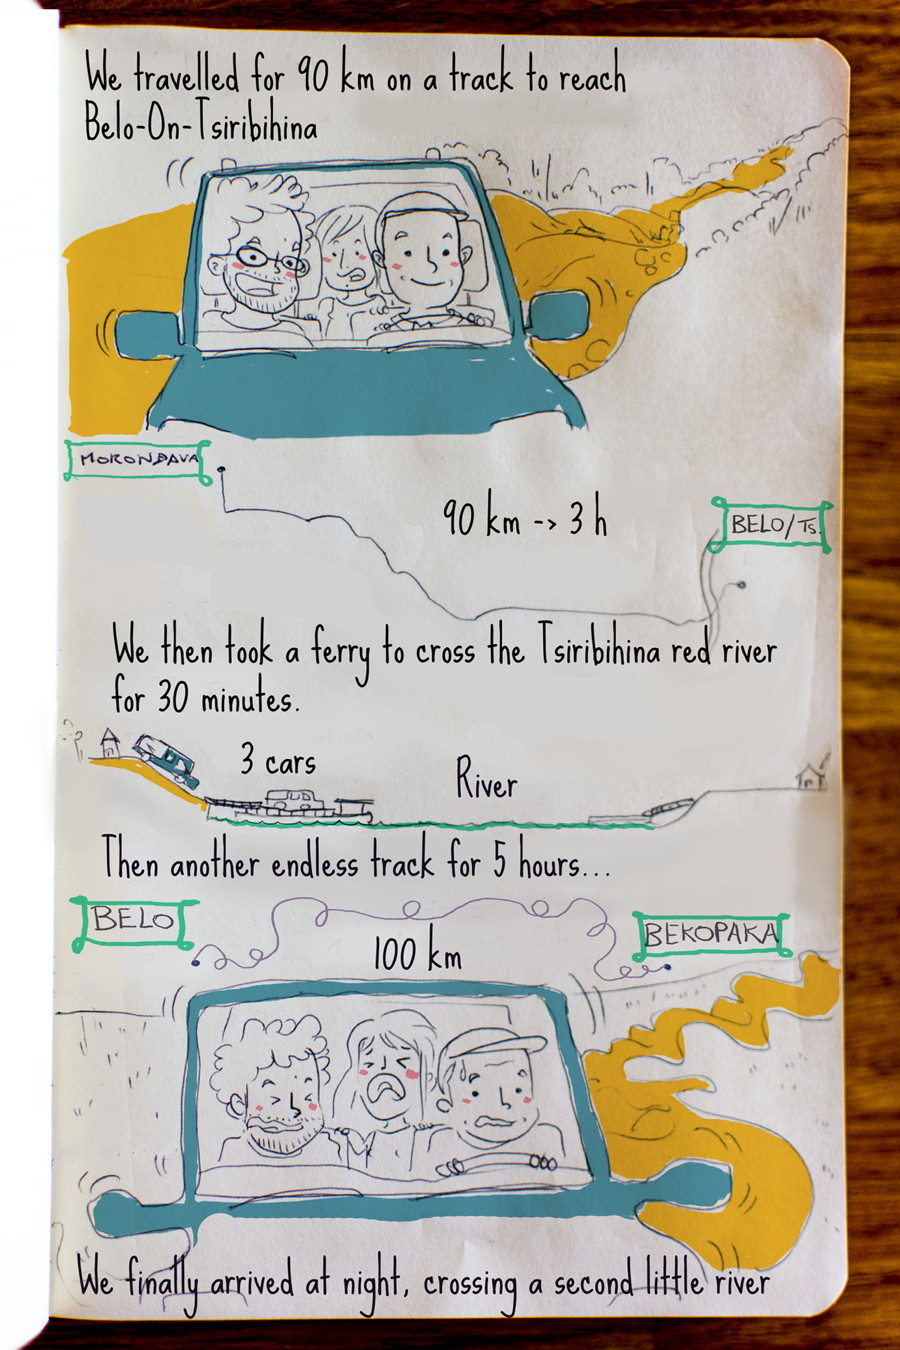 We travelled for 90 km on a track to reach
Belo-On-Tsiribihina
MORONDAVA
90 km -> 3 h
BELO/Ts.
We then took a ferry to cross the Tsiribihina red river
for 30 minutes.
3 cars
River
Then another endless track for 5 hours...
BELO
BEKOPAKA
100 km
We finally arrived at night, crossing a second little river